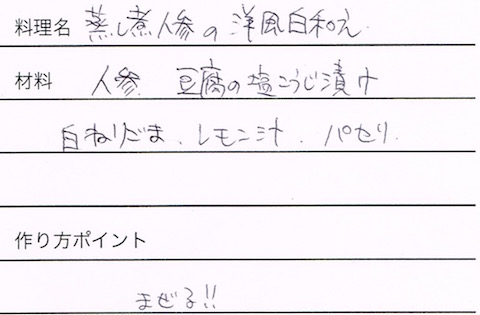 料理名 蒸し煮人参の洋風白和え
材料 人参 豆腐の塩こうじ漬け
白ねりごま、レモン汁、パセリ.
作り方ポイント
まぜる!!